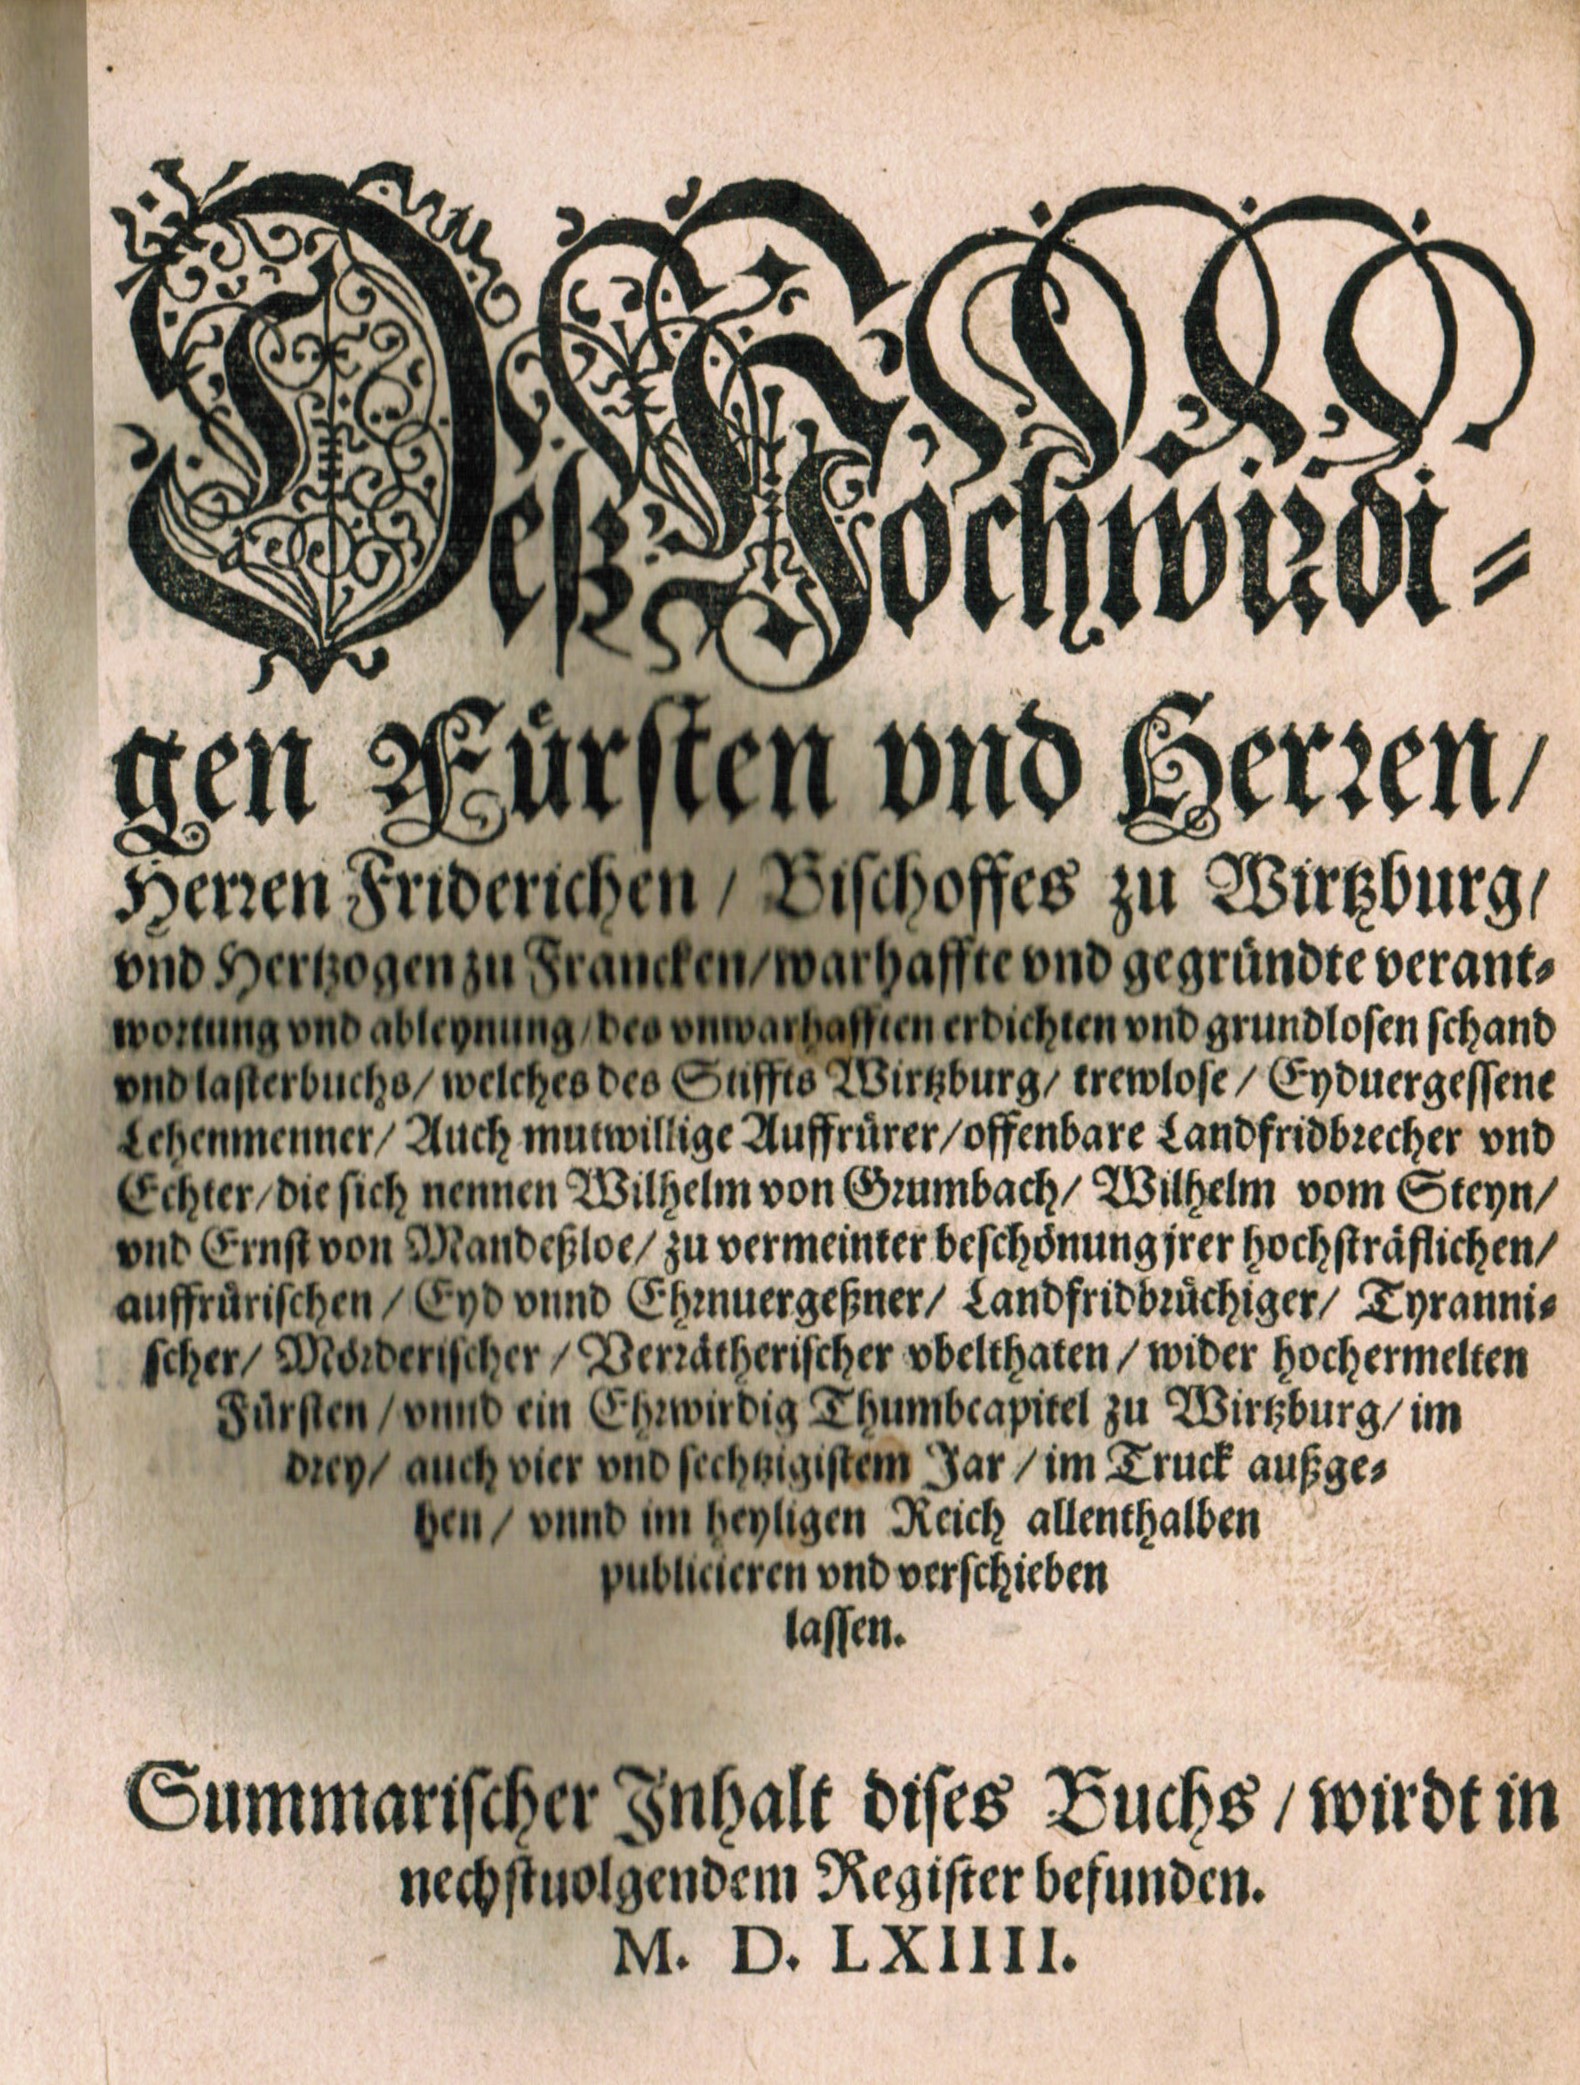 Deß Hochwirdi-
gen Fürsten vnd Herren/
Herren Friderichen / Bischoffes zu Wirtzburg/
vnd Hertzogen zu Francken/warhaffte vnd gegründte verant-
wortung vnd ableynung/des vnwarhafften erdichten vnd grundlosen schand
vnd lasterbuchs/ welches des Stiffts Wirtzburg/ trewlose / Eyduergessene
Lehenmenner/ Auch mutwillige Auffrürer/offenbare Landfridbrecher vnd
Echter/die sich nennen Wilhelm von Grumbach/ Wilhelm vom Steyn/
vnd Ernst von Mandeßloe/ zu vermeinter beschönung jrer hochsträflichen/
auffrürischen / Eyd vnnd Ehrnuergeßner/ Landfridbrüchiger/ Tyranni-
scher/ Mörderischer / Verrätherischer vbelthaten / wider hochermelten
Fürsten / vnnd ein Ehrwirdig Thumbcapitel zu Wirtzburg/ im
drey/ auch vier vnd sechtzigistem Jar / im Truck außge-
hen / vnnd im heyligen Reich allenthalben
publicieren vnd verschieben
lassen.
Summarischer Jnhalt dises Buchs / wirdt in
nechstuolgendem Register befunden.
M. D. LXIIII.